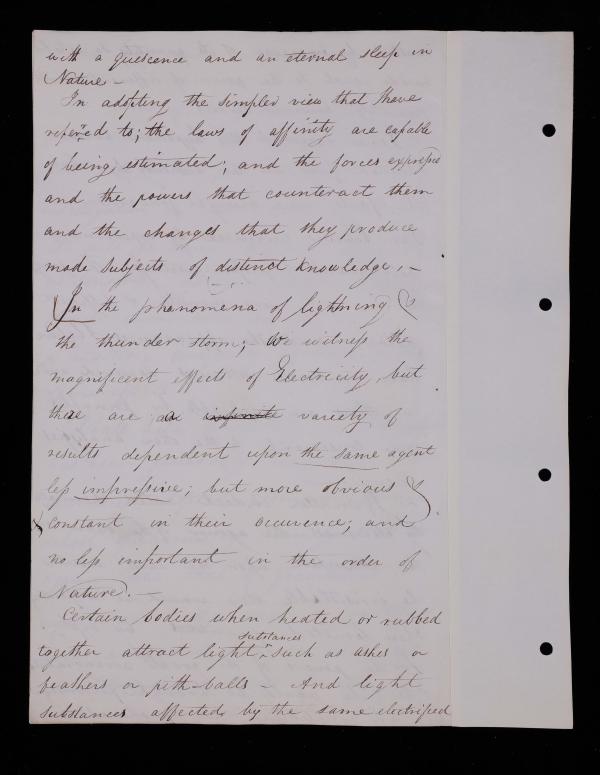 with a quiescence and an eternal sleep in
Nature -
In adopting the simpler view that I have
referred to; the laws of affinity are capable
of being estimated; and the forces expressed
and the powers that counteract them
and the changes that they produce
made subjects of distinct knowledge, -
In the phenomena of lightning &
the thunder storm; we witness the
magnificent effects of Electricity, but
there are a infinite variety of
results dependent upon the same agent
less impressive; but more obvious &
constant in their occurence; and
no less important in the order of
Nature. -
Certain bodies when heated or rubbed
substances
together attract light such as ashes or
feathers or pith-balls - And light
substances affected by the same electrified